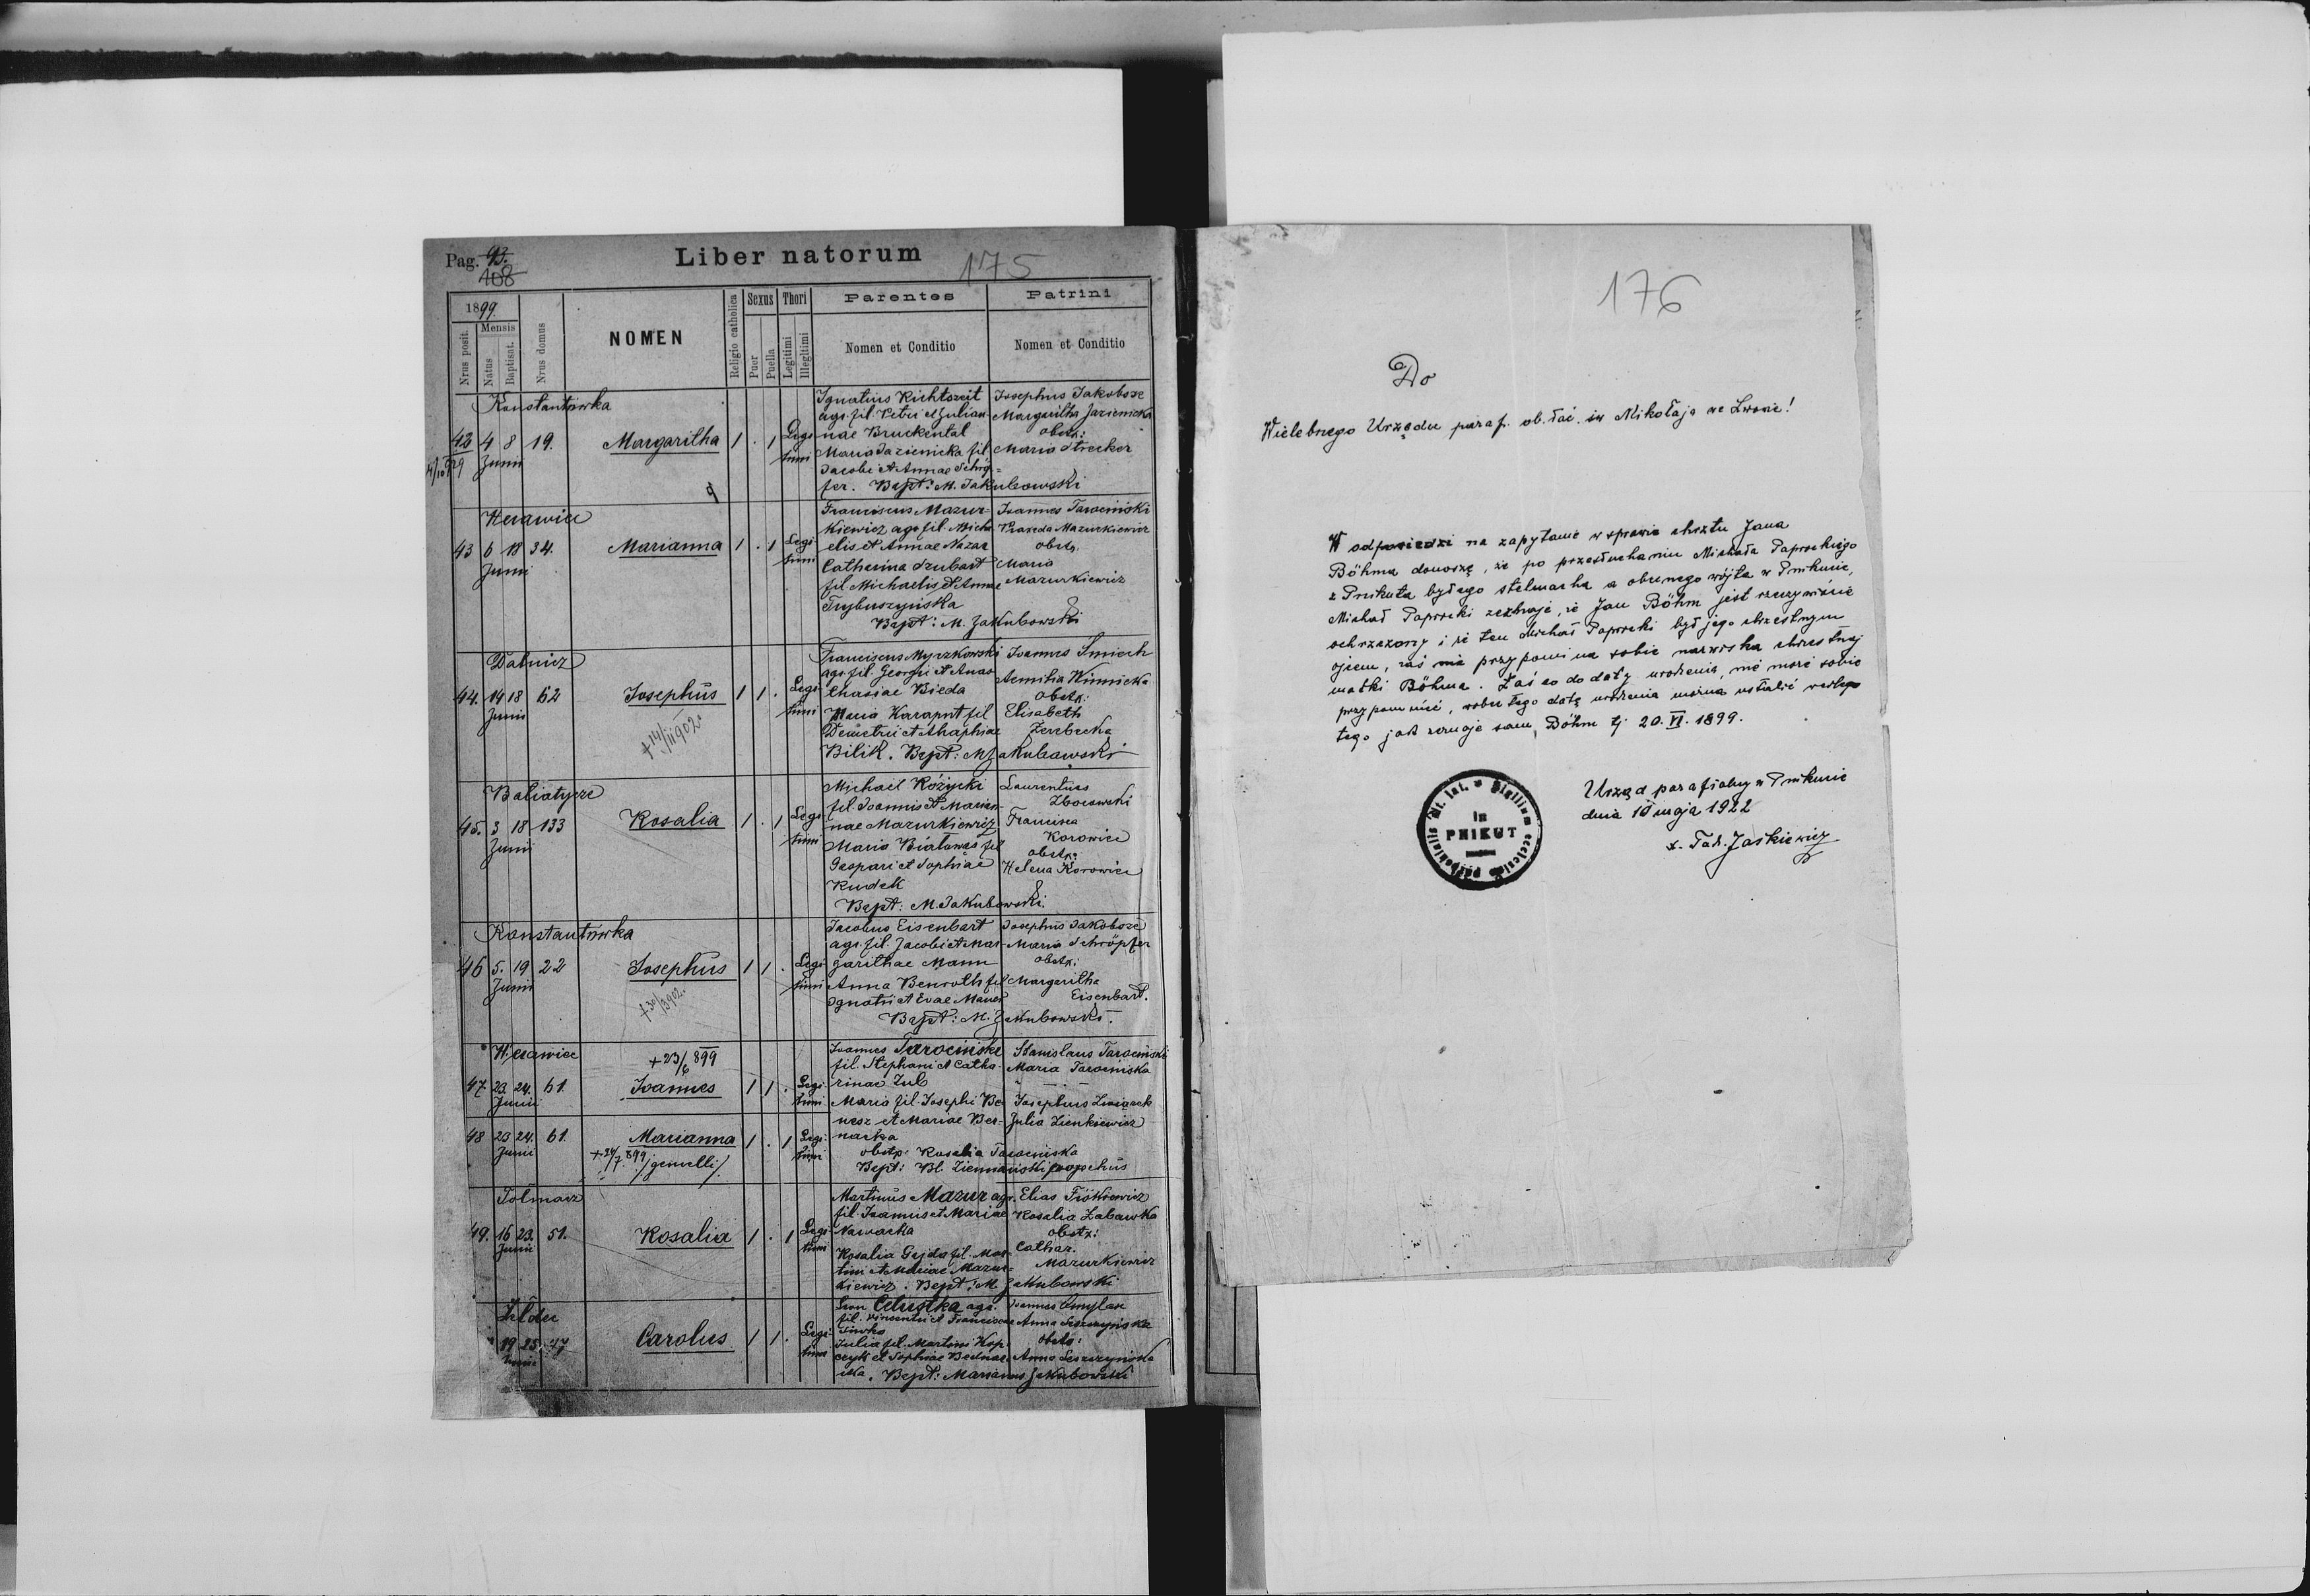 Pag. 93.
108
Liber natorum
175
1899.
Nrus posit.
Mensis
Natus
Baptisat.
Nrus domus
NOMEN
Religio catholica
Sexus
Puer
Puella
Thori
Legitimi
Illegitimi
Parentes
Nomen et Conditio
Patrini
Nomen et Conditio
Konstantówka
42 4 8 19. Margaritha 1 . 1 Legitimi
Junii
Ignatius Richtszeit
agr. fil. Petri et Julian-
nae Bruckental
Maria Jazienicka fil
Jacobi et Annae Schröp-
fer. Bapt: M. Jakubowski
Josephus Jakobsze
Margaritha Jazienicka
obstx:
Maria Strecker
43 6 18 34. Marianna 1 . 1 Legitimi
Junii
Franciscus Mazur-
kiewicz agr. fil. Micha-
elis et Annae Nazar
Catharina Szubart
fil. Michaelis et Annae
Trybuszyńska
Bapt: M. Jakubowski
Joannes Tarociński
Praxeda Mazurkiewicz
obstx.
Maria
Mazurkiewicz
44. 14 18 62 Josephus 1 1 . Legitimi
Junii
Franciscus Myszkowski
agr. fil. Georgii et Anas-
thasiae Bieda
Maria Karapnt fil
Demetrii et Ahaphiae
Bilik. Bapt: M Jakubowski
Joannes Śmiech
Aemilia Winnicka
obstx:
Elisabeth
Zerebecka
Baliatycze
45. 3 18 133 Rosalia 1 . 1 Legitimi
Junii
Michael Różycki
fil. Joannis et Marian-
nae Mazurkiewicz
Maria Białowąs fil
Gaspari et Sophiae
Rudek
Bapt: M. Jakubowski.
Laurentius
Zborowski
Francisca
Korowice
obstx:
Helena Korowice
Konstantówka
46 5. 19 22 Josephus 1 1 . Legitimi
Junii
Jacobus Eisenbart
agr. fil. Jacobi et Mar-
garithae Mann
Anna Benroth fil
Ignatii et Evae Mauer
Bapt: M. Jakubowski.
Josephus Jakobsze
Maria Schröpfer
obstx:
Margaritha
Eisenbart.
+23/6 899
47 23 24. 61. Joannes 1 1 . Legitimi
Junii
Joannes Tarociński
fil. Stephani et Catha-
rinae Zub
Maria fil. Josephi Be-
nesz et Mariae Ber-
nacka
Stanislaus Tarociński
Maria Tarocińska
Josephus Związek
Julia Zienkiewicz
48 23 24. 61. Marianna 1 . 1 Legitimi
Junii
+24/7 899 /gemelli/
obstx: Rosalia Tarocińska
Bapt: Bl. Ziemiański parochus
49. 16 23. 51. Rosalia 1 . 1 Legitimi
Junii
Martinus Mazur agr.
fil. Joannis et Mariae
Nawacka
Rosalia Gajda fil. Mar-
tini et Mariae Mazur-
kiewicz. Bapt: M Jakubowski
Elias Fiśkiewicz
Rosalia Zabawka
obstx:
Cathar.
Mazurkiewicz
19 25 47 Carolus 1 1 . Legitimi
Junii
Leon Celustka agr.
Bapt: Marianus Jakubowski
obstx:
Anna Leszczyńska
176
Do
Wielebnego Urzędu paraf. ob. łać. św Mikołaja we Lwowie!
W odpowiedzi na zapytanie w sprawie chrztu Jana
Böhma donoszę, że po przesłuchaniu Michała Paprockiego
z Pnikuta byłego stelmacha a obecnego wójta w Pnikucie,
Michał Paprocki zeznaje, że Jan Böhm jest rzeczywiście
ochrzczony i że ten Michał Paprocki był jego chrzestnym
ojcem, zaś nie przypomina sobie nazwiska chrzestnej
matki Böhma. Zaś co do daty urodzenia, nie może sobie
przypomnieć, wobec tego datę urodzenia można ustalić według
tego jak zeznaje sam Böhm tj 20. VI. 1899.
Sigillum ecclesiae parochialis rit. lat.
in
PNIKUT
Urząd parafialny w Pnikucie
dnia 10 maja 1922
x. Tad. Jaśkiewicz